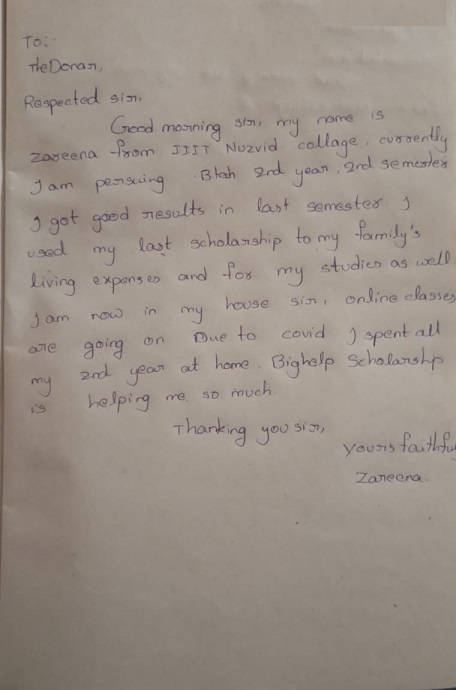 To:-
The Donar,
Respected sir,
Good morning sir, my name is
Zareena from IIIT Nuzvid collage, currently
I am persuing Bteh 2nd year, 2nd semester
I got good results in last semester. I
used my last scholarship to my family's
living expenses and for my studies as well
I am now in my house sir, online classes
are going on Due to covid I spent all
my 2nd year at home. Bighelp Scholarshp
is helping me so much.
Thanking you sir,
yours faithfu
Zareena.